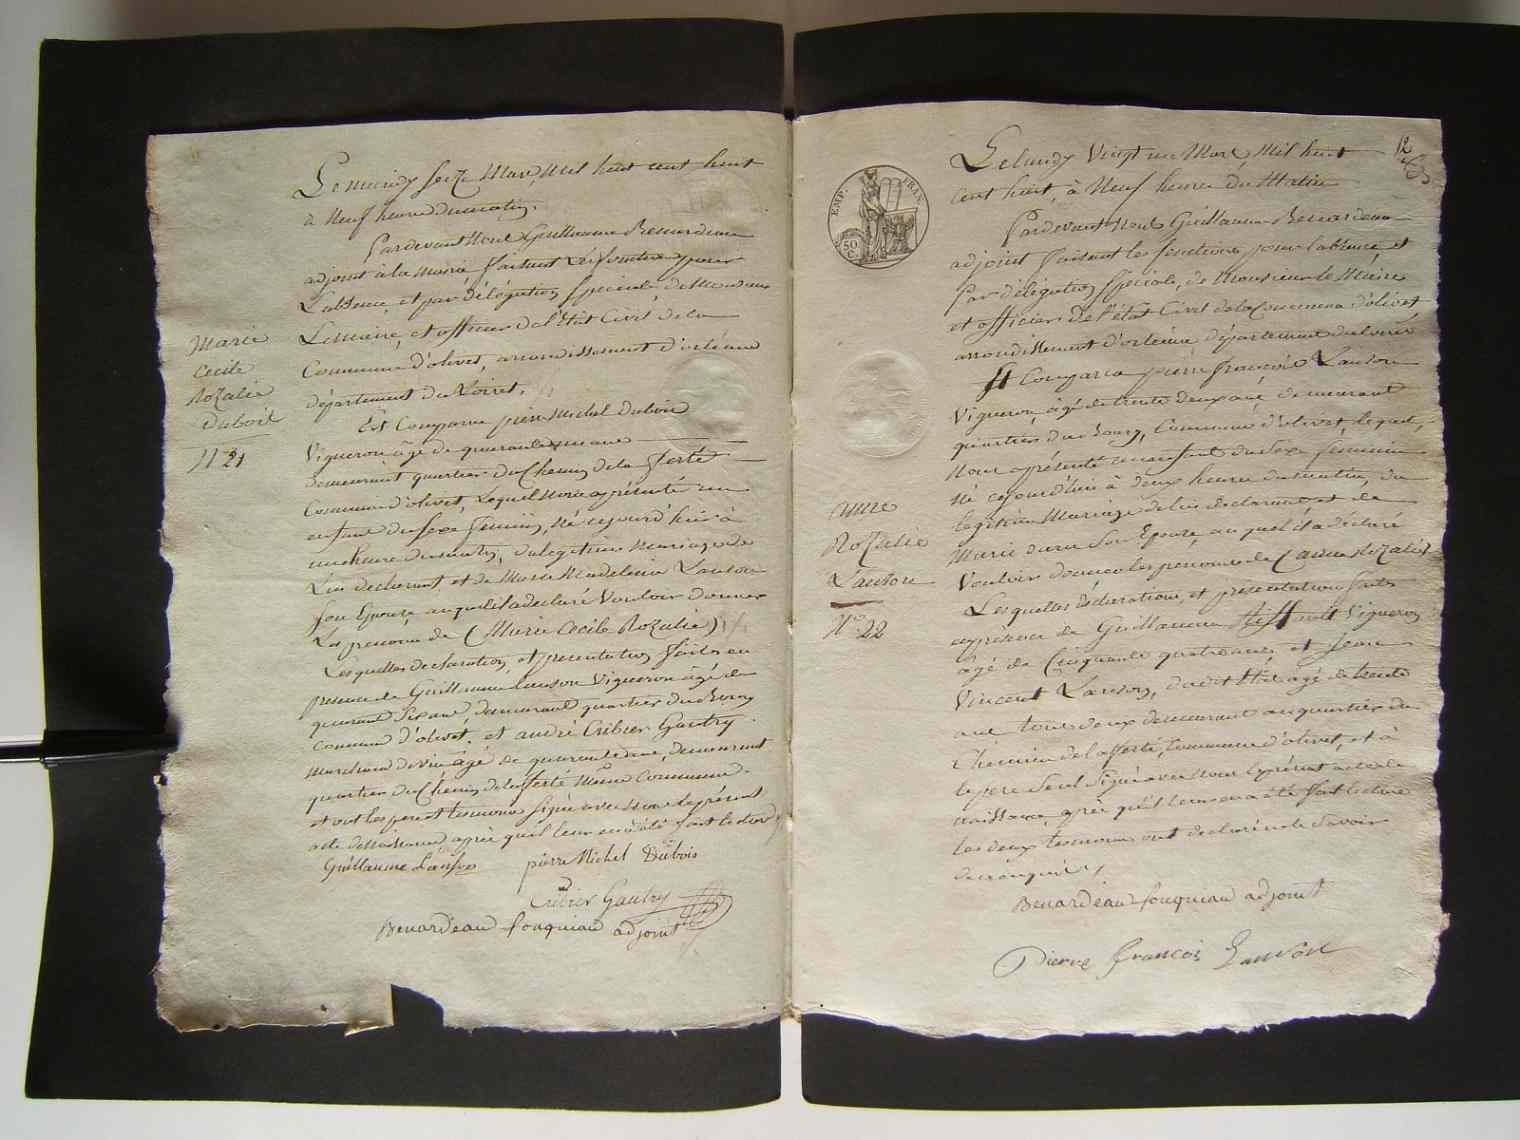 Le mercredy seize Mars, Mil huit cent huit
à Neuf heures du matin,
Pardevant Nous Guillaume Benardeau
adjoint à la Mairie faisant les fonctions pour
L'absence, et par délégation spéciale de Monsieur
Le maire, et officier de l'état Civil de la
Commune d'olivet, arrondissement d'orléans
département du Loiret,
Est Comparu pierre Michel Dubois
Vigneron âgé de quarante ans
demeurant quartier du Chemin de la ferté
Commune d'olivet, Lequel Nous a présenté un
enfant du sexe féminin, Né cejourd'hui à
une heure du matin, du légitime mariage de
Lui déclarant et de Marie Madeleine Lanson
son Epouse, auquel il a déclaré Vouloir donner
Les prenoms de (Marie Cecile Rozalie)
Lesquelles declaration, et presentation faites en
presence de Guillaume Lanson Vigneron âgé de
quarante six ans, demeurant quartier du Bourg
commune d'olivet, et andré Cribier Gautry
Marchand de vin âgé de quarante ans, demeurant
quartier du Chemin de la ferté Même Commune
et ont les pere et temoins signé avec Nous le présent
acte de Naissance, après qu'il leur en a été fait lecture
Marie
Cecile
Rozalie
Dubois
N° 21
Guillaume Lanson pierre Michel Dubois
Cribier Gautry
Benardeau fouquiau adjoint
12
EMP. FRAN.
50
C.
Le lundy Vingt un Mars Mil huit
cent huit, à Neuf heures du Matin
Pardevant Nous Guillaume Benardeau
adjoint faisant les fonctions pour l'absence et
par délégation spéciale, de Monsieur le Maire
et officier de l'état Civil de la Commune d'olivet
arrondissement d'orléans département du loiret
Est Comparu pierre françois Lanson
Vigneron, âgé de trente deux ans demeurant
quartier du Bourg, Commune d'olivet lequel,
Nous a présenté un enfant du sexe feminin
Né cejourd'hui à deux heures du matin, du
legitime Mariage de lui declarant et de
Marie son Epouse, auquel il a déclaré
Vouloir donner les prenoms de (anne Rozalie)
Lesquelles déclaration, et présentation faites
en présence de Guillaume Vigneron
âgé de Cinquante quatre ans, et Jean
Vincent Lanson, âgé de trente
ans tous deux demeurant au quartier du
Chemin de la ferté, Commune d'olivet, et à
le pere seul signé avec nous le présent acte de
naissance, après qu'il leur en a été fait lecture
les deux temoins ont declaré ne le Savoir
de ce enquis
anne
Rozalie
Lanson
N° 22
Benardeau fouquiau adjoint
Pierre françois Lanson